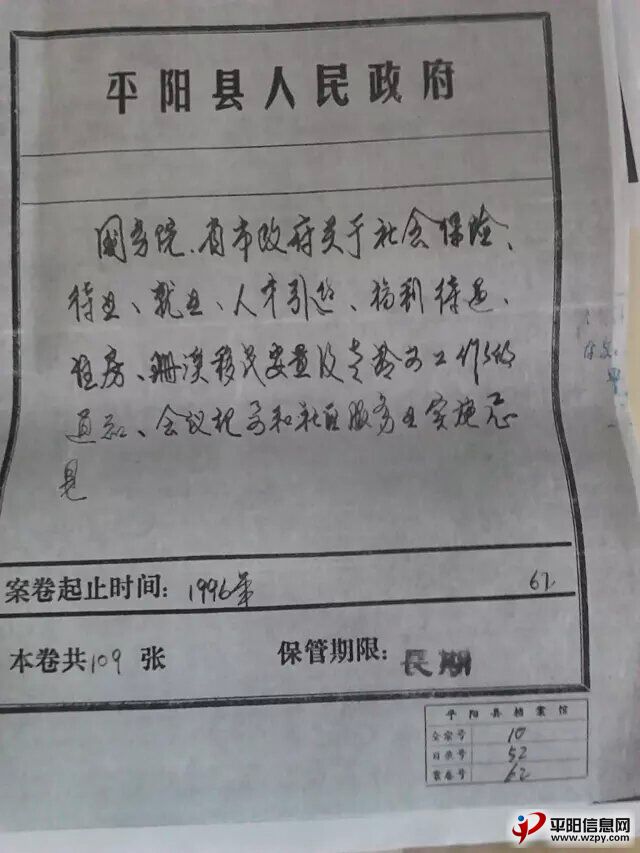 平阳县人民政府
国务院、省市政府关于社会保险、
待业、就业、人才引进、福利待遇、
住房、珊溪移民安置及老龄办工作的
通知、会议纪录和社区服务业实施意
见
案卷起止时间：1996年 62
本卷共109张 保管期限：长期
平阳县档案馆
全宗号 10
目录号 52
案卷号 62
平阳信息网
www.wzpy.com